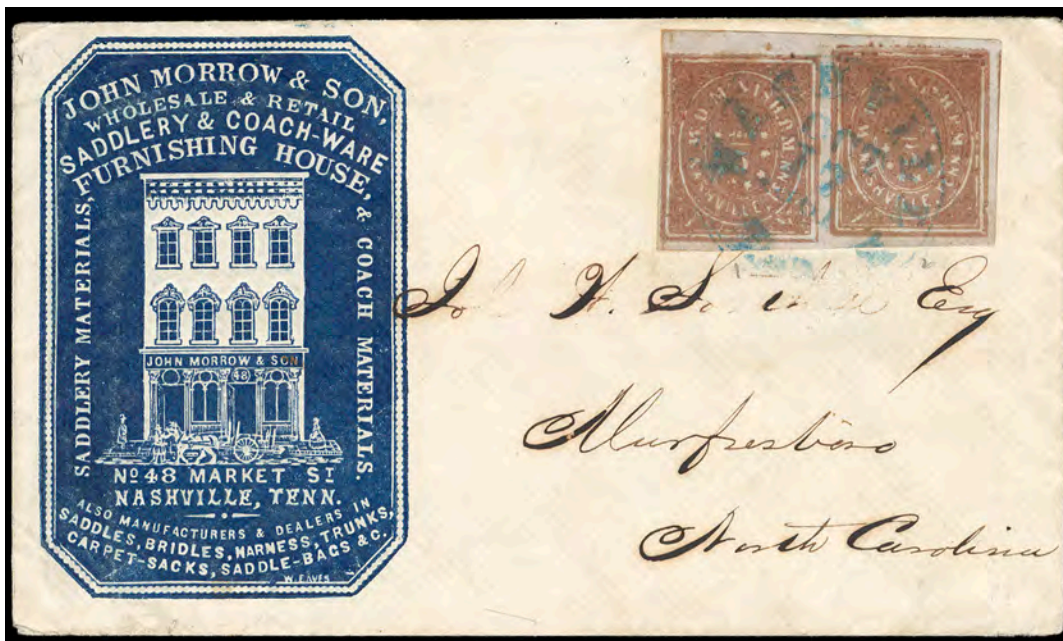 JOHN MORROW & SON,
WHOLESALE & RETAIL
SADDLERY & COACH-WARE
FURNISHING HOUSE,
SADDLERY MATERIALS,
& COACH MATERIALS.
JOHN MORROW & SON
48
No 48 MARKET ST
NASHVILLE, TENN.
ALSO MANUFACTURERS & DEALERS IN
SADDLES, BRIDLES, HARNESS, TRUNKS,
CARPET-SACKS, SADDLE-BAGS &C.
W. EAVES
NASHVILLE
NASHVILLE
Esq
Murfresboro
North Carolina